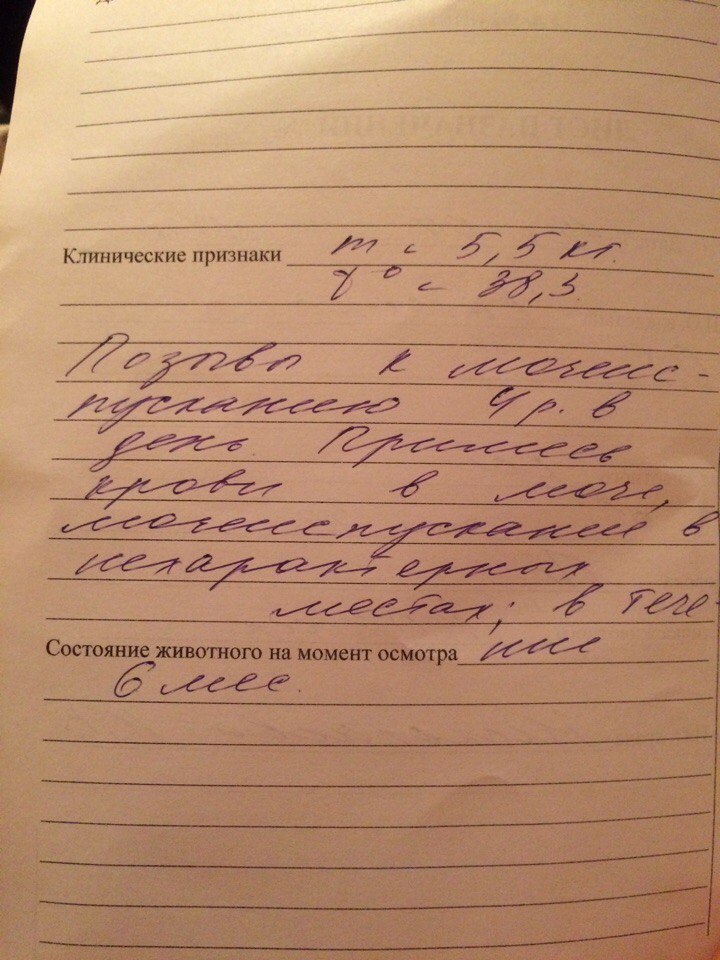 Клинические признаки m - 5,5 кг.
t° - 38,3.
Позывы к мочеис-
пусканию 4 р. в
день. Примесь
крови в моче,
мочеиспускание в
нехарактерных
местах; в тече-
Состояние животного на момент осмотра ние
6 мес.